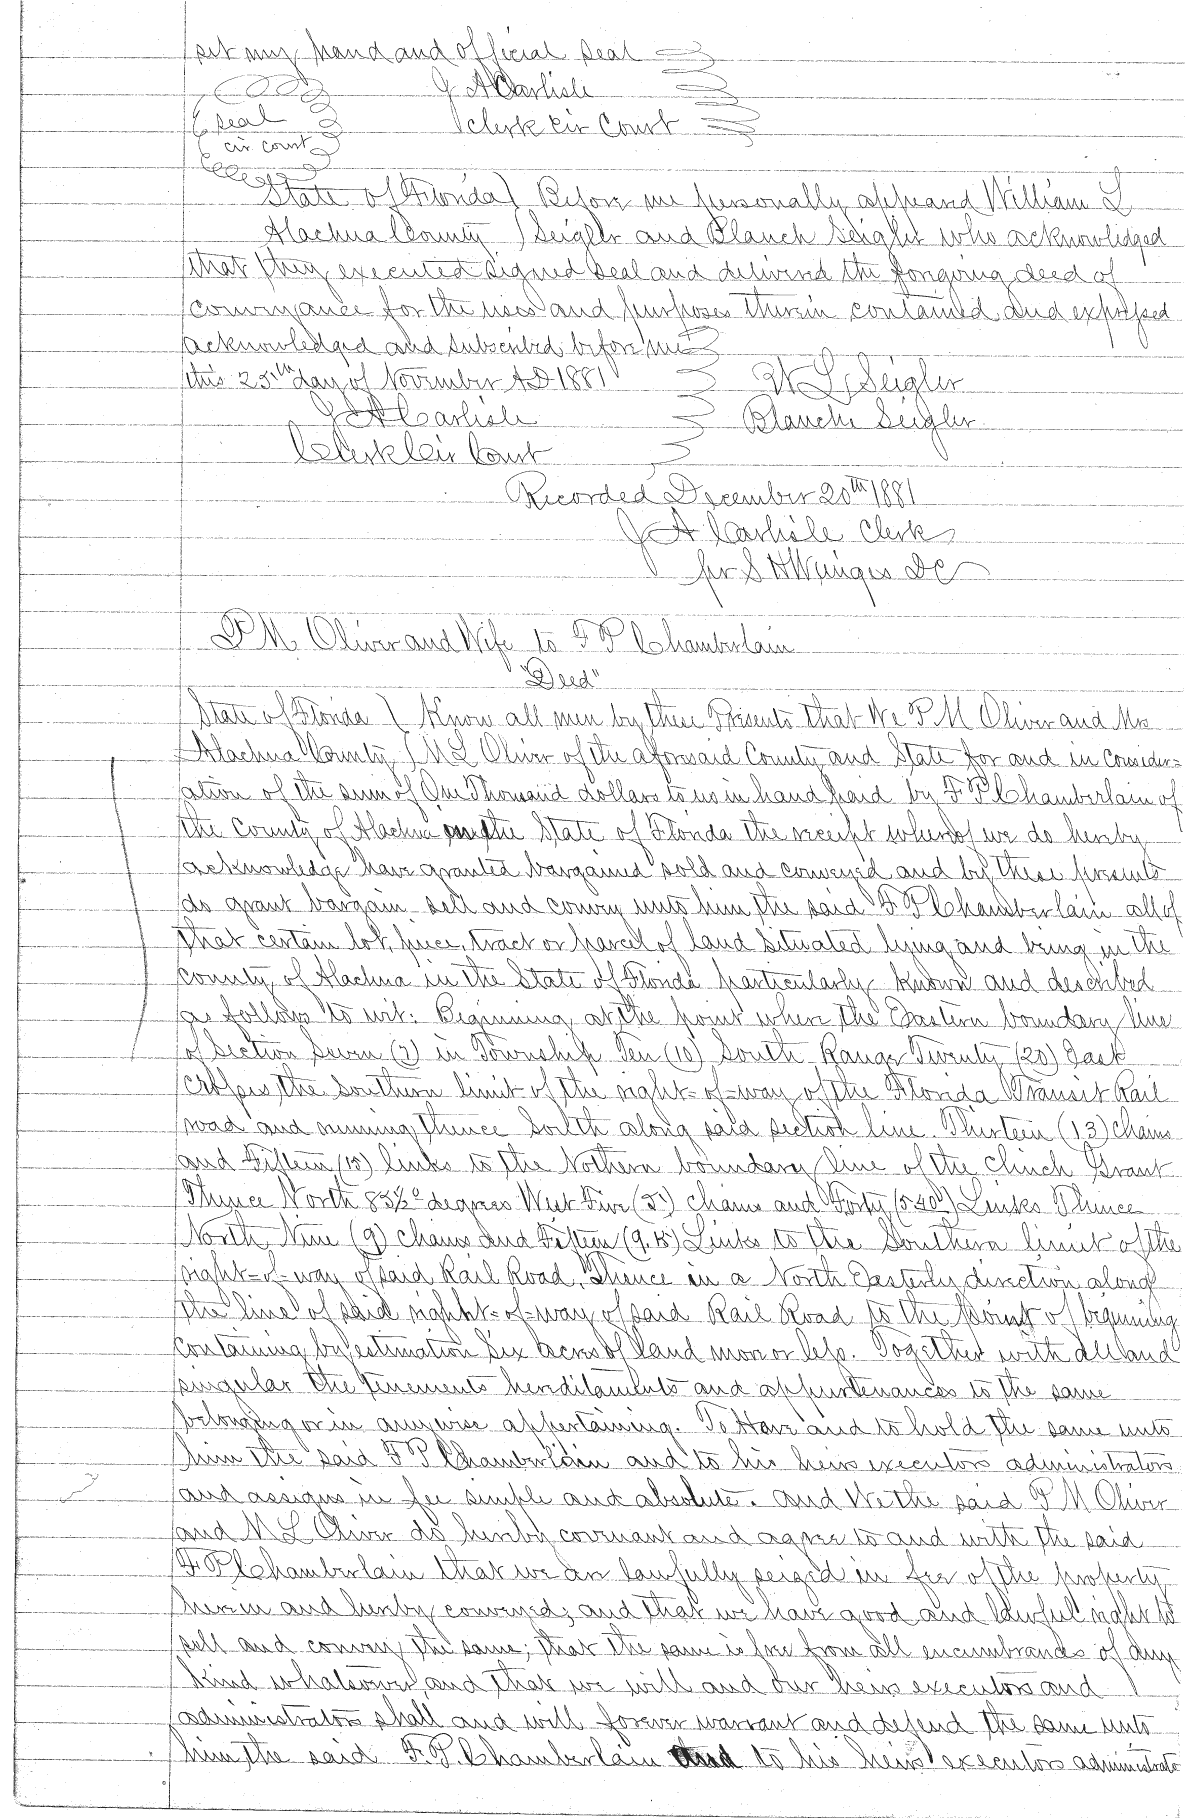 set my hand and official seal
J A Carlisle
seal
Clerk Cir Court
cir court
State of Florida } Before me personally appeard William L
Alachua County } Seigler and Blanch Seigler who acknowledged
that they executed signed seal and delivered the forgoing deed of
conveyance for the uses and purposes therein contained and expressed
acknowledged and subscribed before me
this 25th day of November A.D. 1881
W L Seigler
J A Carlisle
Blanche Seigler
Clerk Cir Court
Recorded December 20th 1881
J A Carlisle Clerk
per S H DC
P M Oliver and Wife to F P Chamberlain
"Deed"
State of Florida } Know all men by these Presents that We P M Oliver and Mrs
Alachua County } M L Oliver of the aforesaid County and State for and in consider=
ation of the sum of One Thousand dollars to us in hand paid by F P Chamberlain of
the County of Alachua and the State of Florida the receipt whereof we do hereby
acknowledge have granted bargained sold and conveyed and by these presents
do grant bargain sell and convey unto him the said F P Chamberlain all of
that certain lot, piece, tract or parcel of land situated lying and being in the
county of Alachua in the State of Florida particularly known and described
as follows to wit: Beginning at the point where the Eastern boundary line
of Section Seven (7) in Township Ten (10) South Range Twenty (20) East
crosses the southern limit of the right=of=way of the Florida Transit Rail
road and running thence South along said section line Thirteen (13) chains
and Fifteen (15) links to the Nothern boundary line of the Clinch Grant
Thence North 83½° degrees West Five (5) chains and Forty (5.40) Links Thence
North Nine (9) chains and Fifteen (9.15) Links to the Southern limit of the
right=of=way of said Rail Road, Thence in a North Easterly direction along
the line of said right=of=way of said Rail Road to the point of begining
containing by estimation Six acres of land more or less. Together with all and
singular the tenements hereditaments and appurtenances to the same
belonging or in anywise appertaining. To Have and to hold the same unto
him the said F P Chamberlain and to his heirs executors administrators
and assigns in fee simple and absolute. And We the said P M Oliver
and M L Oliver do hereby covenant and agree to and with the said
F P Chamberlain that we are lawfully seized in fee of the property
herein and hereby conveyed; and that we have good and lawful right to
sell and convey the same; that the same is free from all encumbrances of any
kind whatsoever, and that we will and our heirs executors and
administrators shall and will forever warrant and defend the same unto
him the said F. P. Chamberlain and to his heirs executors administrato